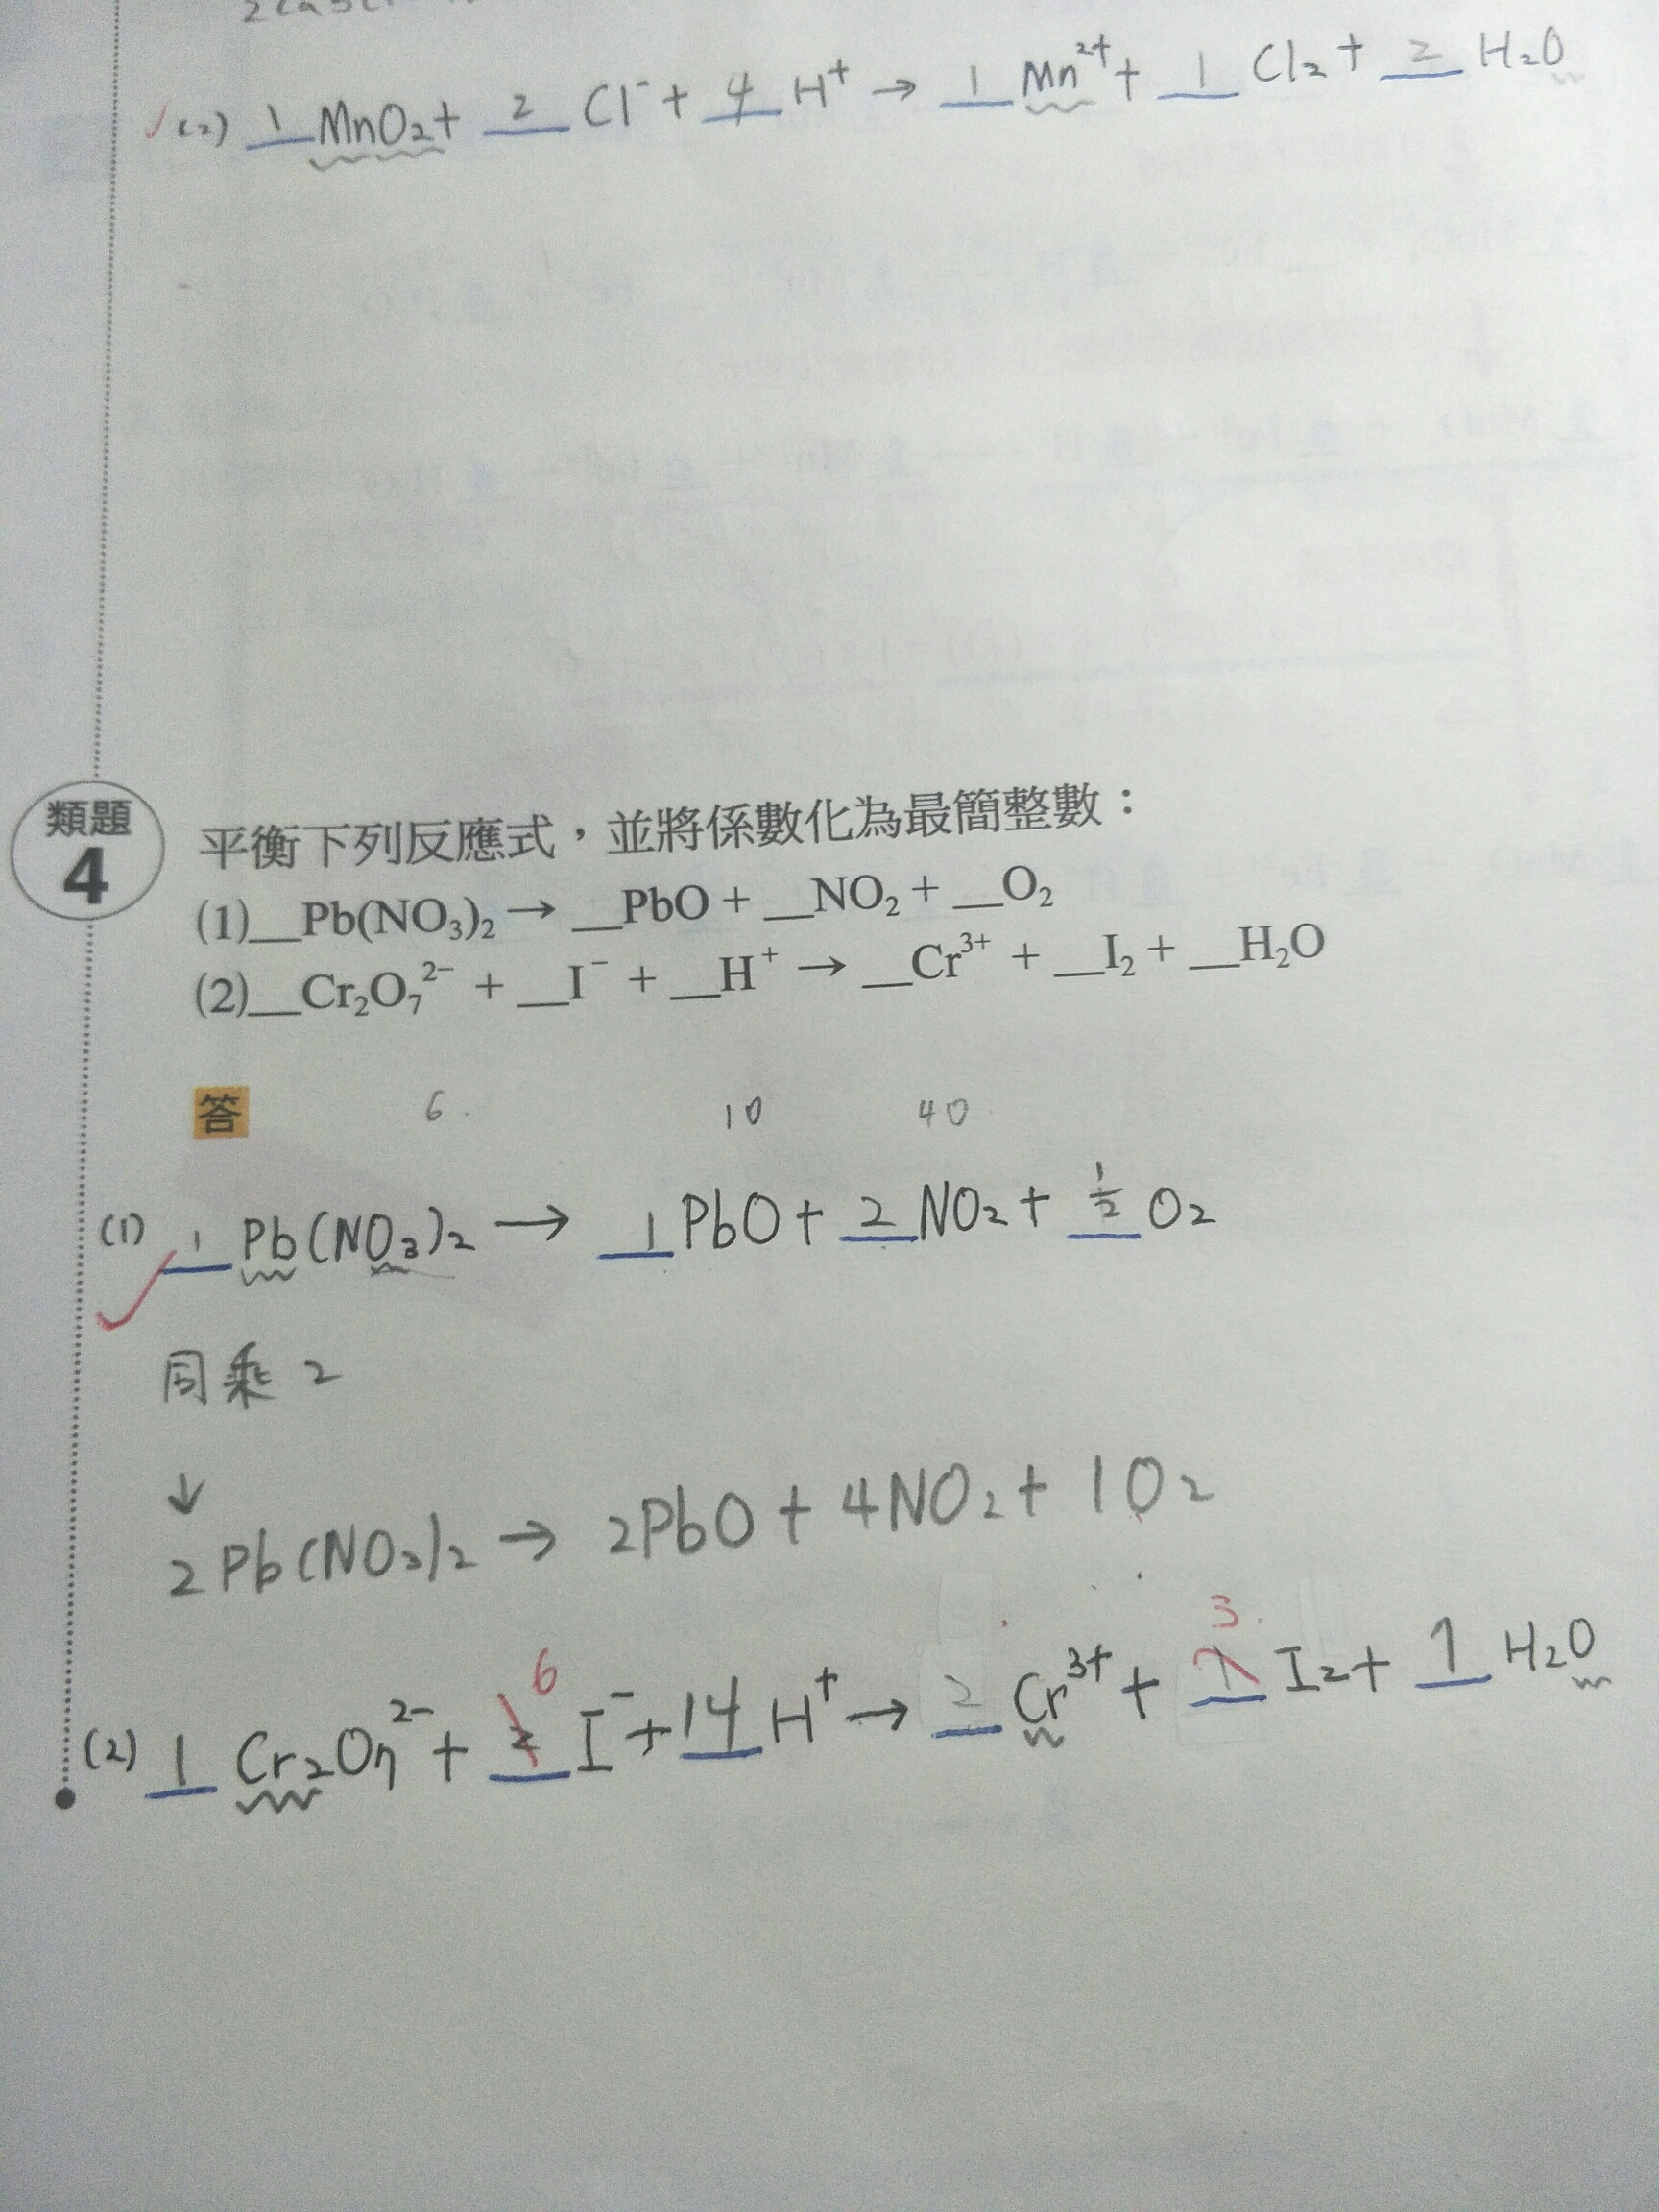 (2) 1 MnO₂ + 2 Cl⁻ + 4 H⁺ → 1 Mn²⁺ + 1 Cl₂ + 2 H₂O
類題
4
平衡下列反應式，並將係數化為最簡整數：
(1)__Pb(NO₃)₂ → __PbO + __NO₂ + __O₂
(2)__Cr₂O₇²⁻ + __I⁻ + __H⁺ → __Cr³⁺ + __I₂ + __H₂O
答 6. 10 40
(1) 1 Pb(NO₃)₂ → 1 PbO + 2 NO₂ + 1/2 O₂
同乘 2
↓
2Pb(NO₃)₂ → 2PbO + 4NO₂ + 1O₂
6 3.
(2) 1 Cr₂O₇²⁻ + 2 I⁻ + 14 H⁺ → 2 Cr³⁺ + 1 I₂ + 7 H₂O